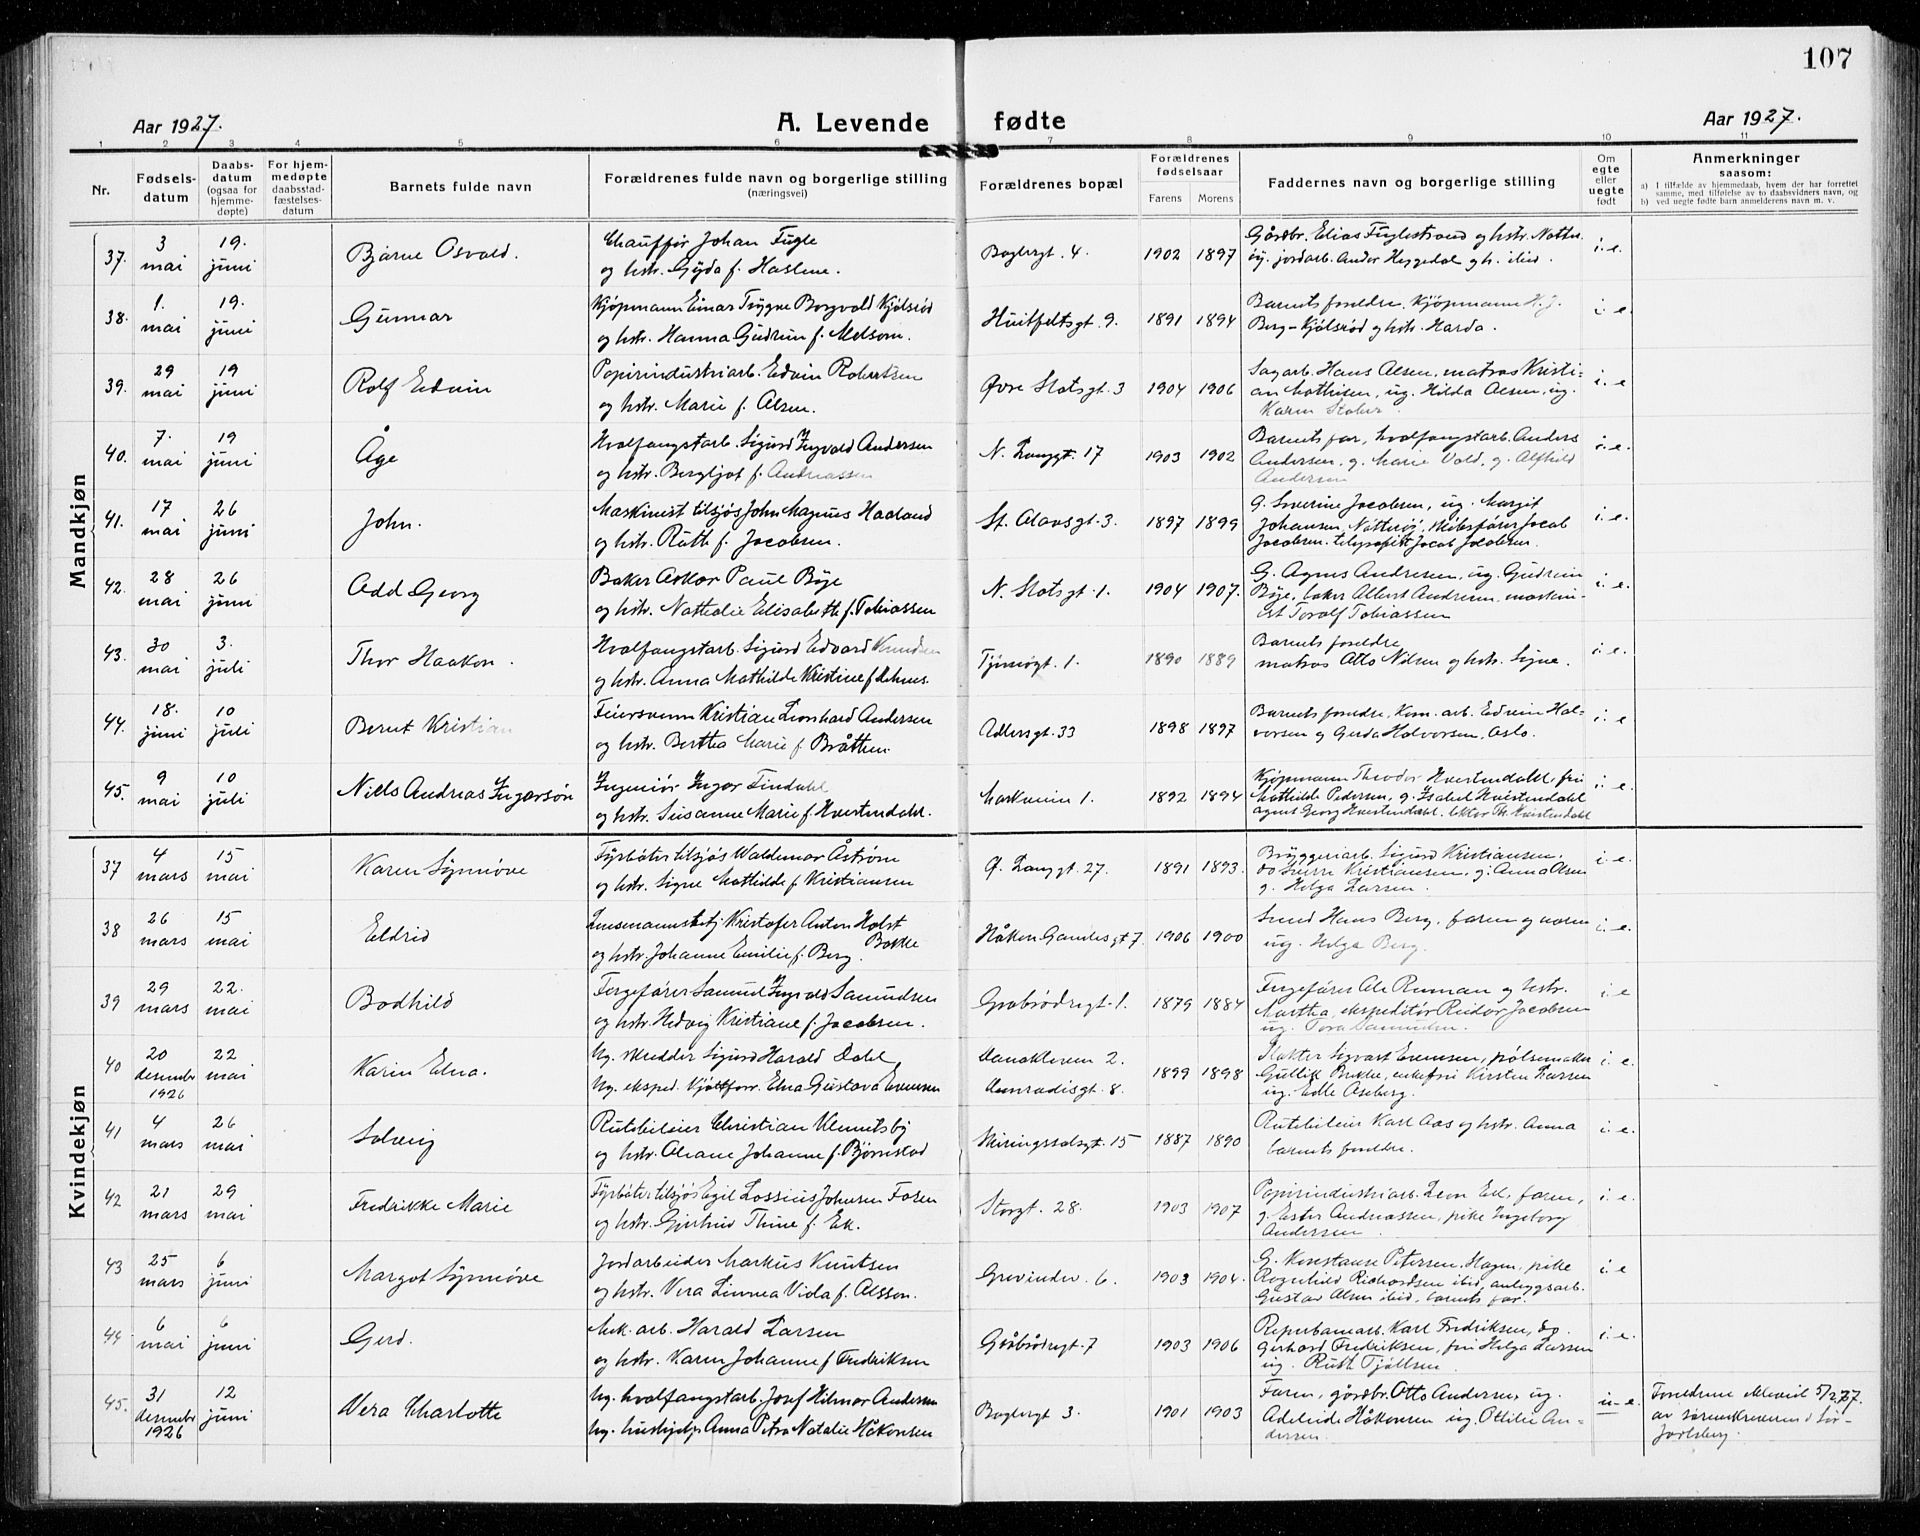 107
Aar 1927.
A. Levende fødte
Aar 1927.
1 2 3 4 5 6 7 8 9 10 11
Nr.
Fødsels-
datum
Daabs-
datum
(ogsaa for
hjemme-
døpte)
For hjem-
medøpte
daabsstad-
fæstelses-
datum
Barnets fulde navn
Forældrenes fulde navn og borgerlige stilling
(næringsvei)
Forældrenes bopæl
Forældrenes
fødselsaar
Farens Morens
Faddernes navn og borgerlige stilling
Om
egte
eller
uegte
født
Anmerkninger
saasom:
a) I tilfælde av hjemmedaab, hvem der har forrettet
samme, med tilføielse av to daabsvidners navn, og
b) ved uegte fødte barn anmelderens navn m. v.
Mandkjøn
37. 3 mai 19. juni Bjarne Osvald.
Chauffør Johan Fugle
og hstr. Gyda f. Haslene.
Baglergt. 4. 1902 1897
Gårdbr. Elias Fuglestrand og hstr.
ug. jordarb. Andor Heggedal
i. e.
38. 1. mai 19. juni Gunnar
Kjøpmann Einar Trygve Borgvald Kjølsrød
og hstr. Hanna Gudrun f. Melsom.
Huitfeltsgt. 9. 1891 1894
Barnets foreldre, Kjøpmann H. J.
Berg-Kjølsrød og hstr. Harda.
i. e.
39. 29 mai 19 juni Rolf Edvin
Papirindustriarb. Edvin Robertsen
og hstr. Marie f. Olsen.
Øvre Slotsgt. 3 1904 1906
Sagarb. Hans Olsen, matros Kristi-
an Mathisen, ug. Hilda Olsen, ug.
Karen
i. e
40. 7. mai 19 juni Åge
Hvalfangstarb. Sigurd Ingvald Andersen
og hstr. Bergljot f. Andreassen
N. Langgt. 17 1903 1902
Barnets far, hvalfangstarb. Anders
Andersen, g. Marie Vold, g. Alfhild
Andersen
i. e.
41. 17 mai 26 juni John.
Maskinist tilsjøs John Magnus Haaland
og hstr. Ruth f. Jacobsen.
St. Olavsgt. 3. 1897 1899
G. Severine Jacobsen, ug. Margit
Johansen, Nøtterøy, Skibsfører Jacob
Jacobsen, telegrafist Jacob Jacobsen.
i. e.
42. 28 mai 26 juni Odd Georg
Baker Oskar Paul Bøje
og hstr. Nathalie Elisabeth f. Tobiassen
N. Slotsgt. 1. 1904 1907.
G. Agnes Andresen, ug. Gudrun
Bøje, baker Albert Andresen, maskin-
ist Toralf Tobiassen
i. e.
43. 30 mai 3. juli Thor Haakon.
Hvalfangstarb. Sigurd Edvard Knudsen
og hstr. Anna Mathilde Kristine f.
Tjømøgt. 1. 1890 1889
Barnets foreldre
matros Otto Nilsen og hstr. Signe.
i. e.
44. 18. juni 10 juli Bernt Kristian
Feiersvenn Kristian Leonhard Andersen
og hstr. Bertha Marie f. Bråthen.
Adlersgt. 33 1898 1897
Barnets foreldre, Kom. arb. Edvin Hal-
vorsen og Gerda Halvorsen, Oslo.
i. e
45. 9 mai 10 juli Niels Andreas Ingarsøn
Ingeniør Ingar Tindahl
og hstr. Susanne Marie f. Hvistendahl.
1. 1892 1894
Kjøpmann Theodor Hvistendahl, fru
Mathilde Pedersen, g. Isabel Hvistendahl
agent Georg Hvistendahl, lektor Th. Hvistendahl
i. e.
Kvindekjøn
37 4 mars 15 mai Karen Synnøve
Fyrbøter tilsjøs Waldemar Åstrøm
og hstr. Signe Mathilde f. Kristiansen
Ø. Langgt. 27. 1891 1893.
Bryggeriarb. Sigurd Kristiansen,
do Sverre Kristiansen, g. Anna Olsen
g. Helga Larsen.
i. e.
38 26 mars 15 mai Eldrid
Lensmannsbetj. Kristofer Anton Holst
Bakke
og hstr. Johanne Emilie f. Berg.
Håkon Gamlesgt 7. 1906 1900
Smed Hans Berg, faren og moren
ug. Helga Berg.
i. e.
39 29 mars 22. mai Bodhild
Fergefører Samuel Ingvald Samuelsen
og hstr. Hedvig Kristiane f. Jacobsen.
Gråbrødregt. 1. 1879 1884
Fergefører Ole Roman og hstr.
Martha, ekspeditør Reidar Jacobsen
ug. Tora Samuelsen.
i. e
40 20 desembr 1926 22 mai Karin Elna.
Ug. skredder Sigurd Harald Dahl,
Ug. eksped. Kjøttforr. Elna Gustava Evensen
2.
Conradisgt. 8. 1899 1898
Slakter Sigvart Evensen, pølsemaker
Gullik Bakke, enkefru Kirsten Larsen
ug. Edle Aseberg.
i. e.
41 4 mars 26 mai Solveig
Rutebileier Christian Klemetsby
og hstr. Oleane Johanne f. Bjørnstad
Skiringssalsgt. 15 1887 1890
Rutebileier Karl Aas og hstr. Anna
barnets foreldre.
i. e.
42 21 mars 29 mai Fredrikke Marie
Fyrbøter tilsjøs Egil Lossius Johnsen Foren
og hstr. Gjertrud Thine f. Ek.
Storgt. 28. 1903 1907
Papirindustriarb. Leon Ek, faren,
g. Ester Andreassen, pike Ingeborg
Andersen.
i. e.
43 25 mars 6 juni Margot Synnøve
Jordarbeider Markus Knutsen
og hstr. Vera Linnea Viola f. Olsson.
Grevinden. 6. 1903 1904.
G. Konstanse Petersen, Hagen, pike
Ragnhild Richardsen ibid, anleggsarb.
Gustav Olsen ibid, barnets far.
i. e
44. 6 mai 6 juni Gerd.
Mek. arb. Harald Larsen
og hstr. Karen Johanne f. Fredriksen
Gråbrødregt. 7 1903 1906
Reperbanearb. Karl Fredriksen, do.
Gerhard Fredriksen, fru Helga Larsen
ug. Ruth Tjøllsen
i. e.
45. 31 desembr 1926 12 juni Vera Charlotte
Ug. hvalfangstarb. Josef Hilmar Andersen
Ug. hushjelp Anna Petra Natalie Håkonsen
Baglergt 3. 1901 1903
Faren, gårdbr. Otto Andersen, ug.
Adeleide Håkonsen ug. Ottilie An-
dersen.
u. e.
Foreldrene ekteviet 5/2 27.
av sorenskriveren i Sør-
Jarlsberg.